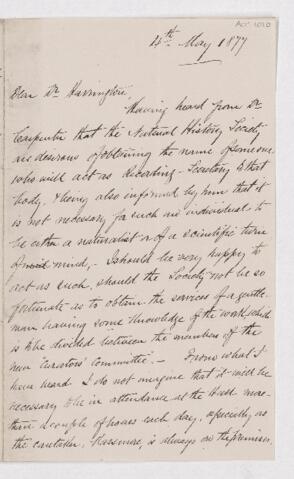 Acc. 1020
4th May 1877
Dear Dr Harrington,
Having heard from Dr
Carpenter that the Natural History Society
are desirous of obtaining the name of someone
who will act as Recording-Secretary to that
body, & being also informed by him that it
is not necessary for such an individual to
be either a naturalist or of a scientific turn
of mind, - I should be very happy to
act as such, should the Society not be so
fortunate as to obtain the services of a gentle-
man having some knowledge of the work which
is to be divided between the members of the
new "Curators' Committee". - From what I
have heard I do not imagine that it will be
necessary to be in attendance at the Museum more
than a couple of hours each day, especially as
the caretaker, Passmore, is always on the premises.